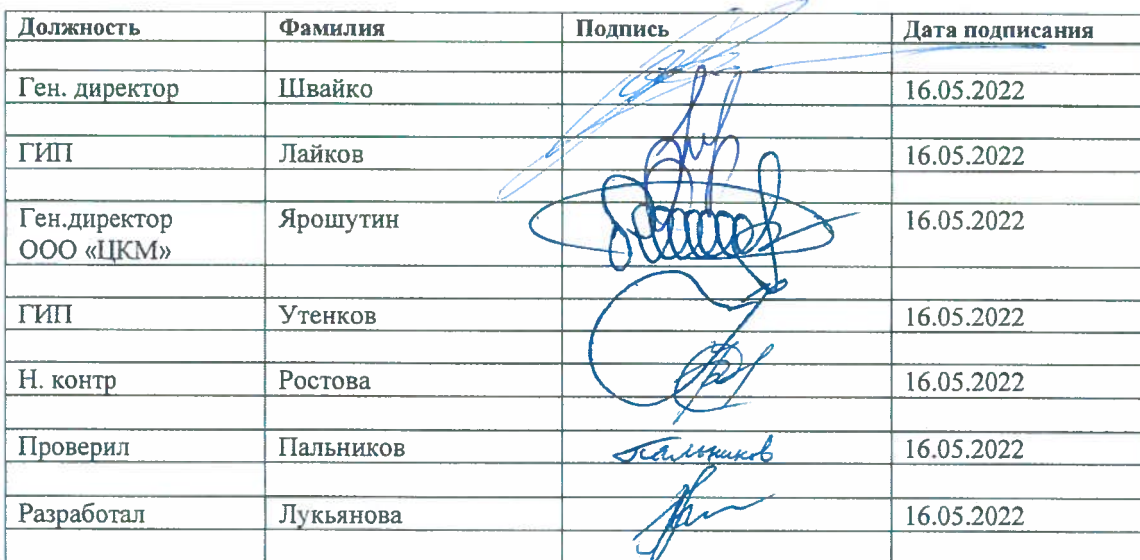 Должность Фамилия Подпись Дата подписания
Ген. директор Швайко 16.05.2022
ГИП Лайков 16.05.2022
Ген.директор Ярошутин 16.05.2022
ООО «ЦКМ»
ГИП Утенков 16.05.2022
Н. контр Ростова 16.05.2022
Проверил Пальников Пальников 16.05.2022
Разработал Лукьянова 16.05.2022